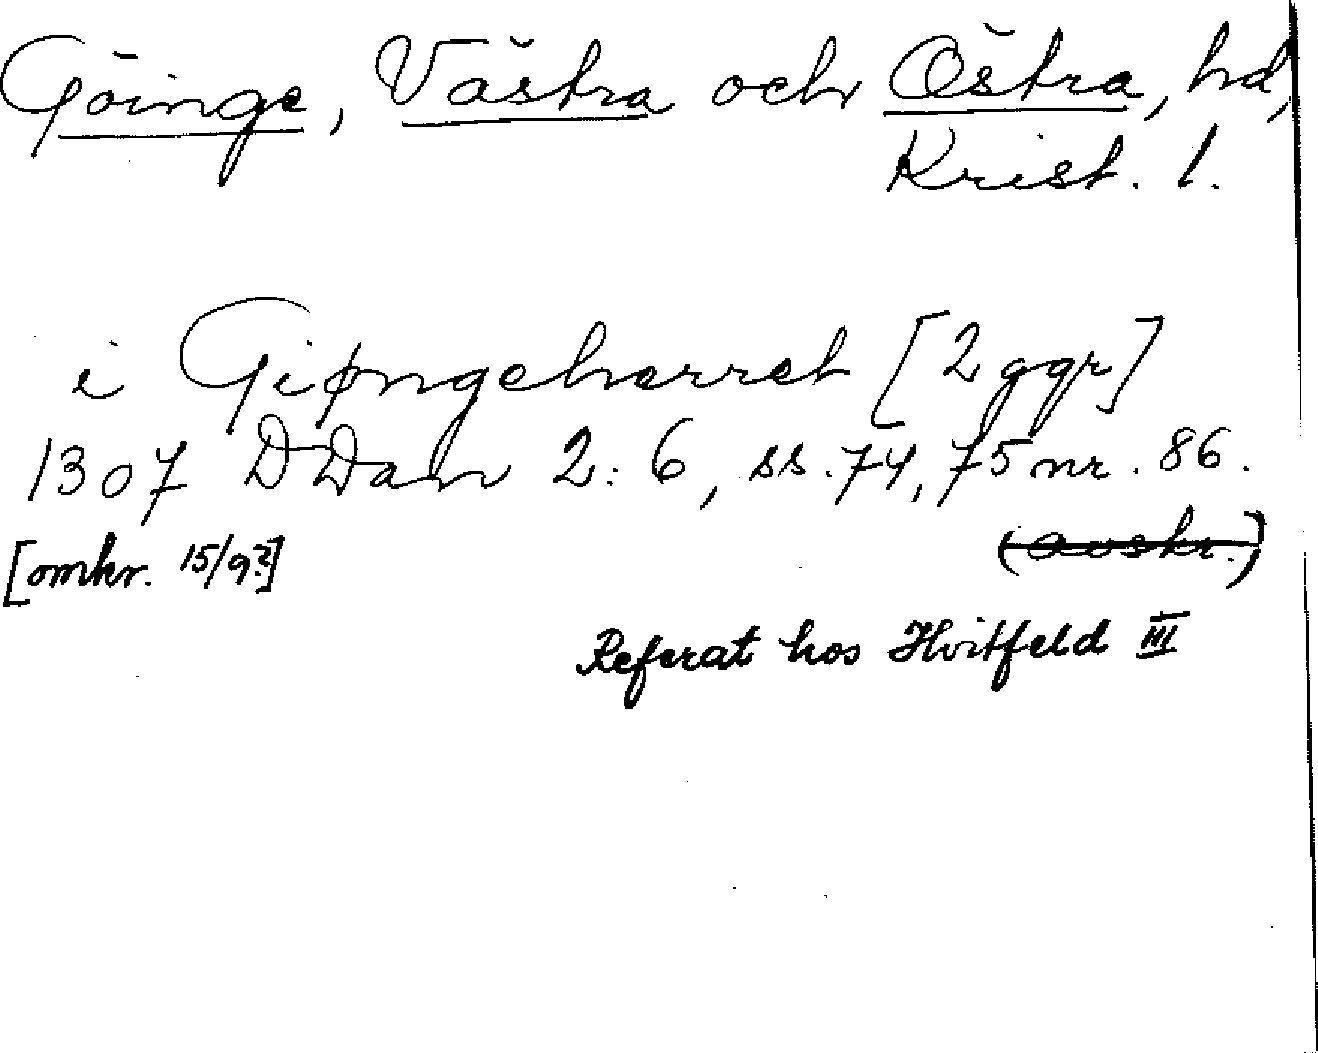 Göinge, Västra och Östra, hd,
Krist. l.
i Giøngeherret [2 ggr]
1307 DDan 2:6, ss. 74, 75 nr. 86.
[omkr. 15/9?] (avskr.)
Referat hos Hvitfeld III